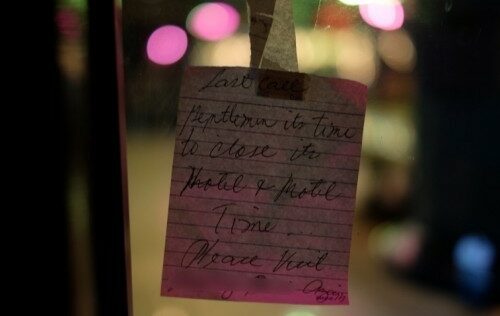 Last Call
Gentlemen its time
to close its
Hotel & Motel
Time ...
Please Visit